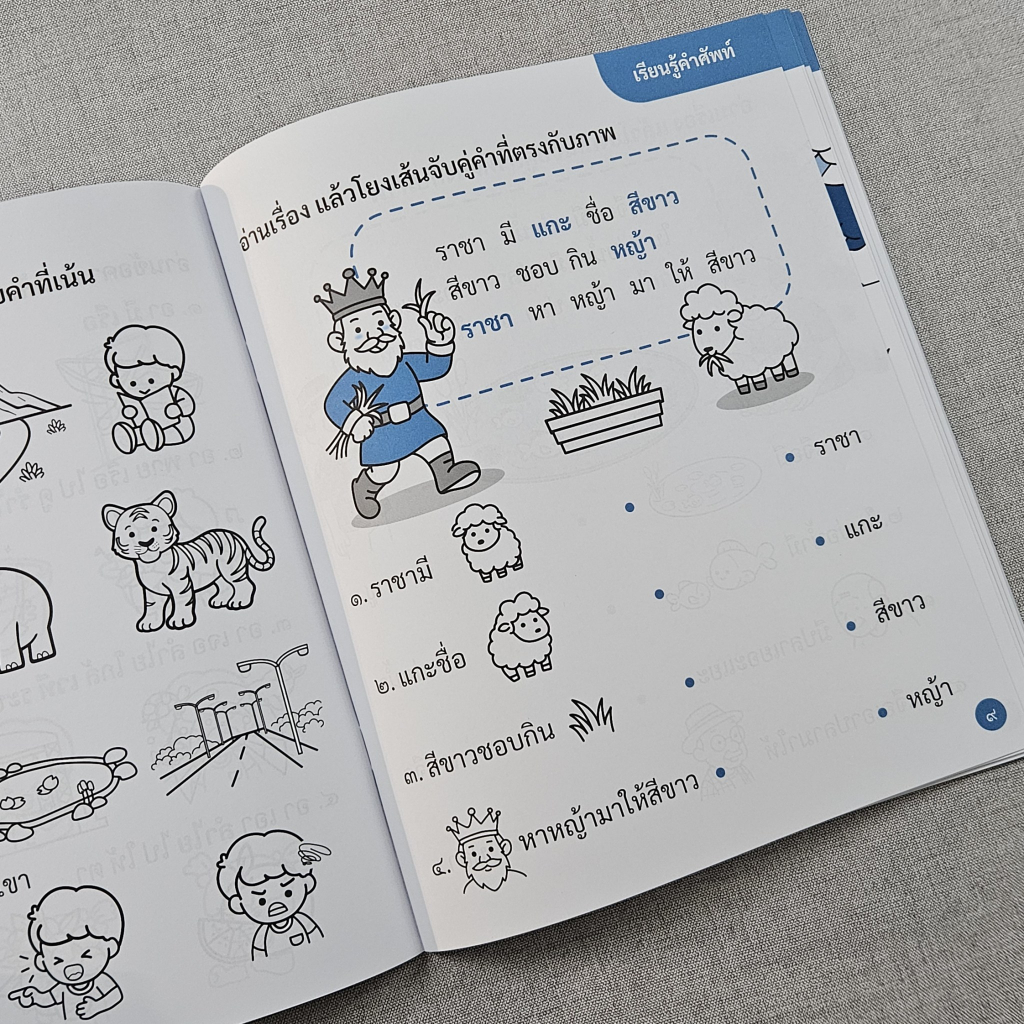 คำที่เน้น
ขา
เรียนรู้คำศัพท์
อ่านเรื่อง แล้วโยงเส้นจับคู่คำที่ตรงกับภาพ
ราชา มี แกะ ชื่อ สีขาว
สีขาว ชอบ กิน หญ้า
ราชา หา หญ้า มา ให้ สีขาว
๑. ราชามี
๒. แกะชื่อ
๓. สีขาวชอบกิน
๔. หาหญ้ามาให้สีขาว
ราชา
แกะ
สีขาว
หญ้า
๙